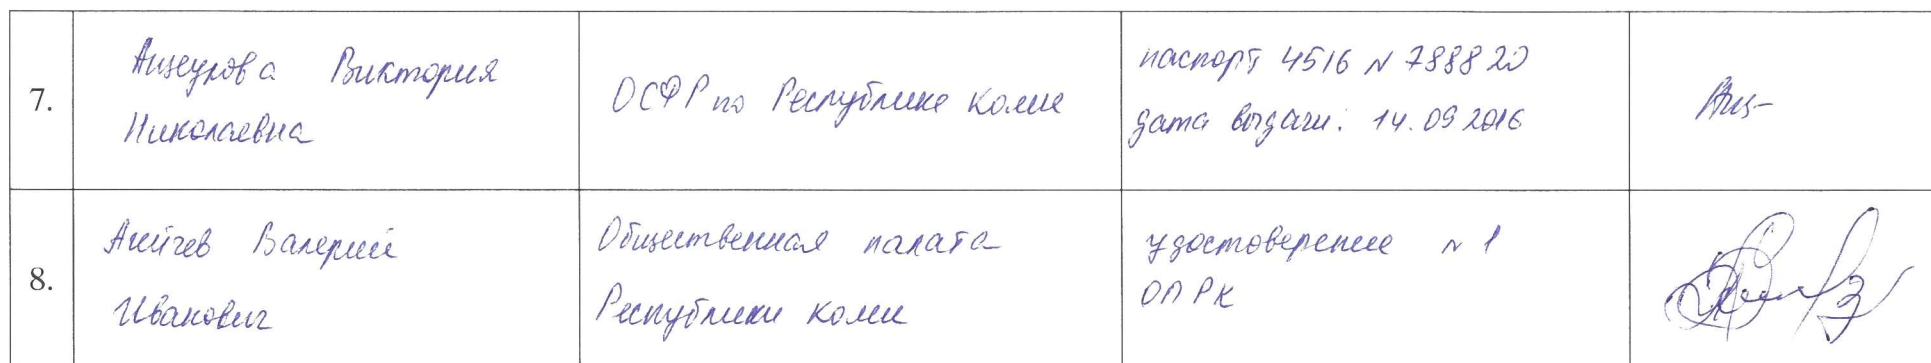 7.
Виктория
Николаевна
ОСФР по Республике Коми
паспорт 4516 N 788820
дата выдачи: 14.09.2016
8.
Валерий
Иванович
Общественная палата
Республики Коми
удостоверение N 1
ОП РК